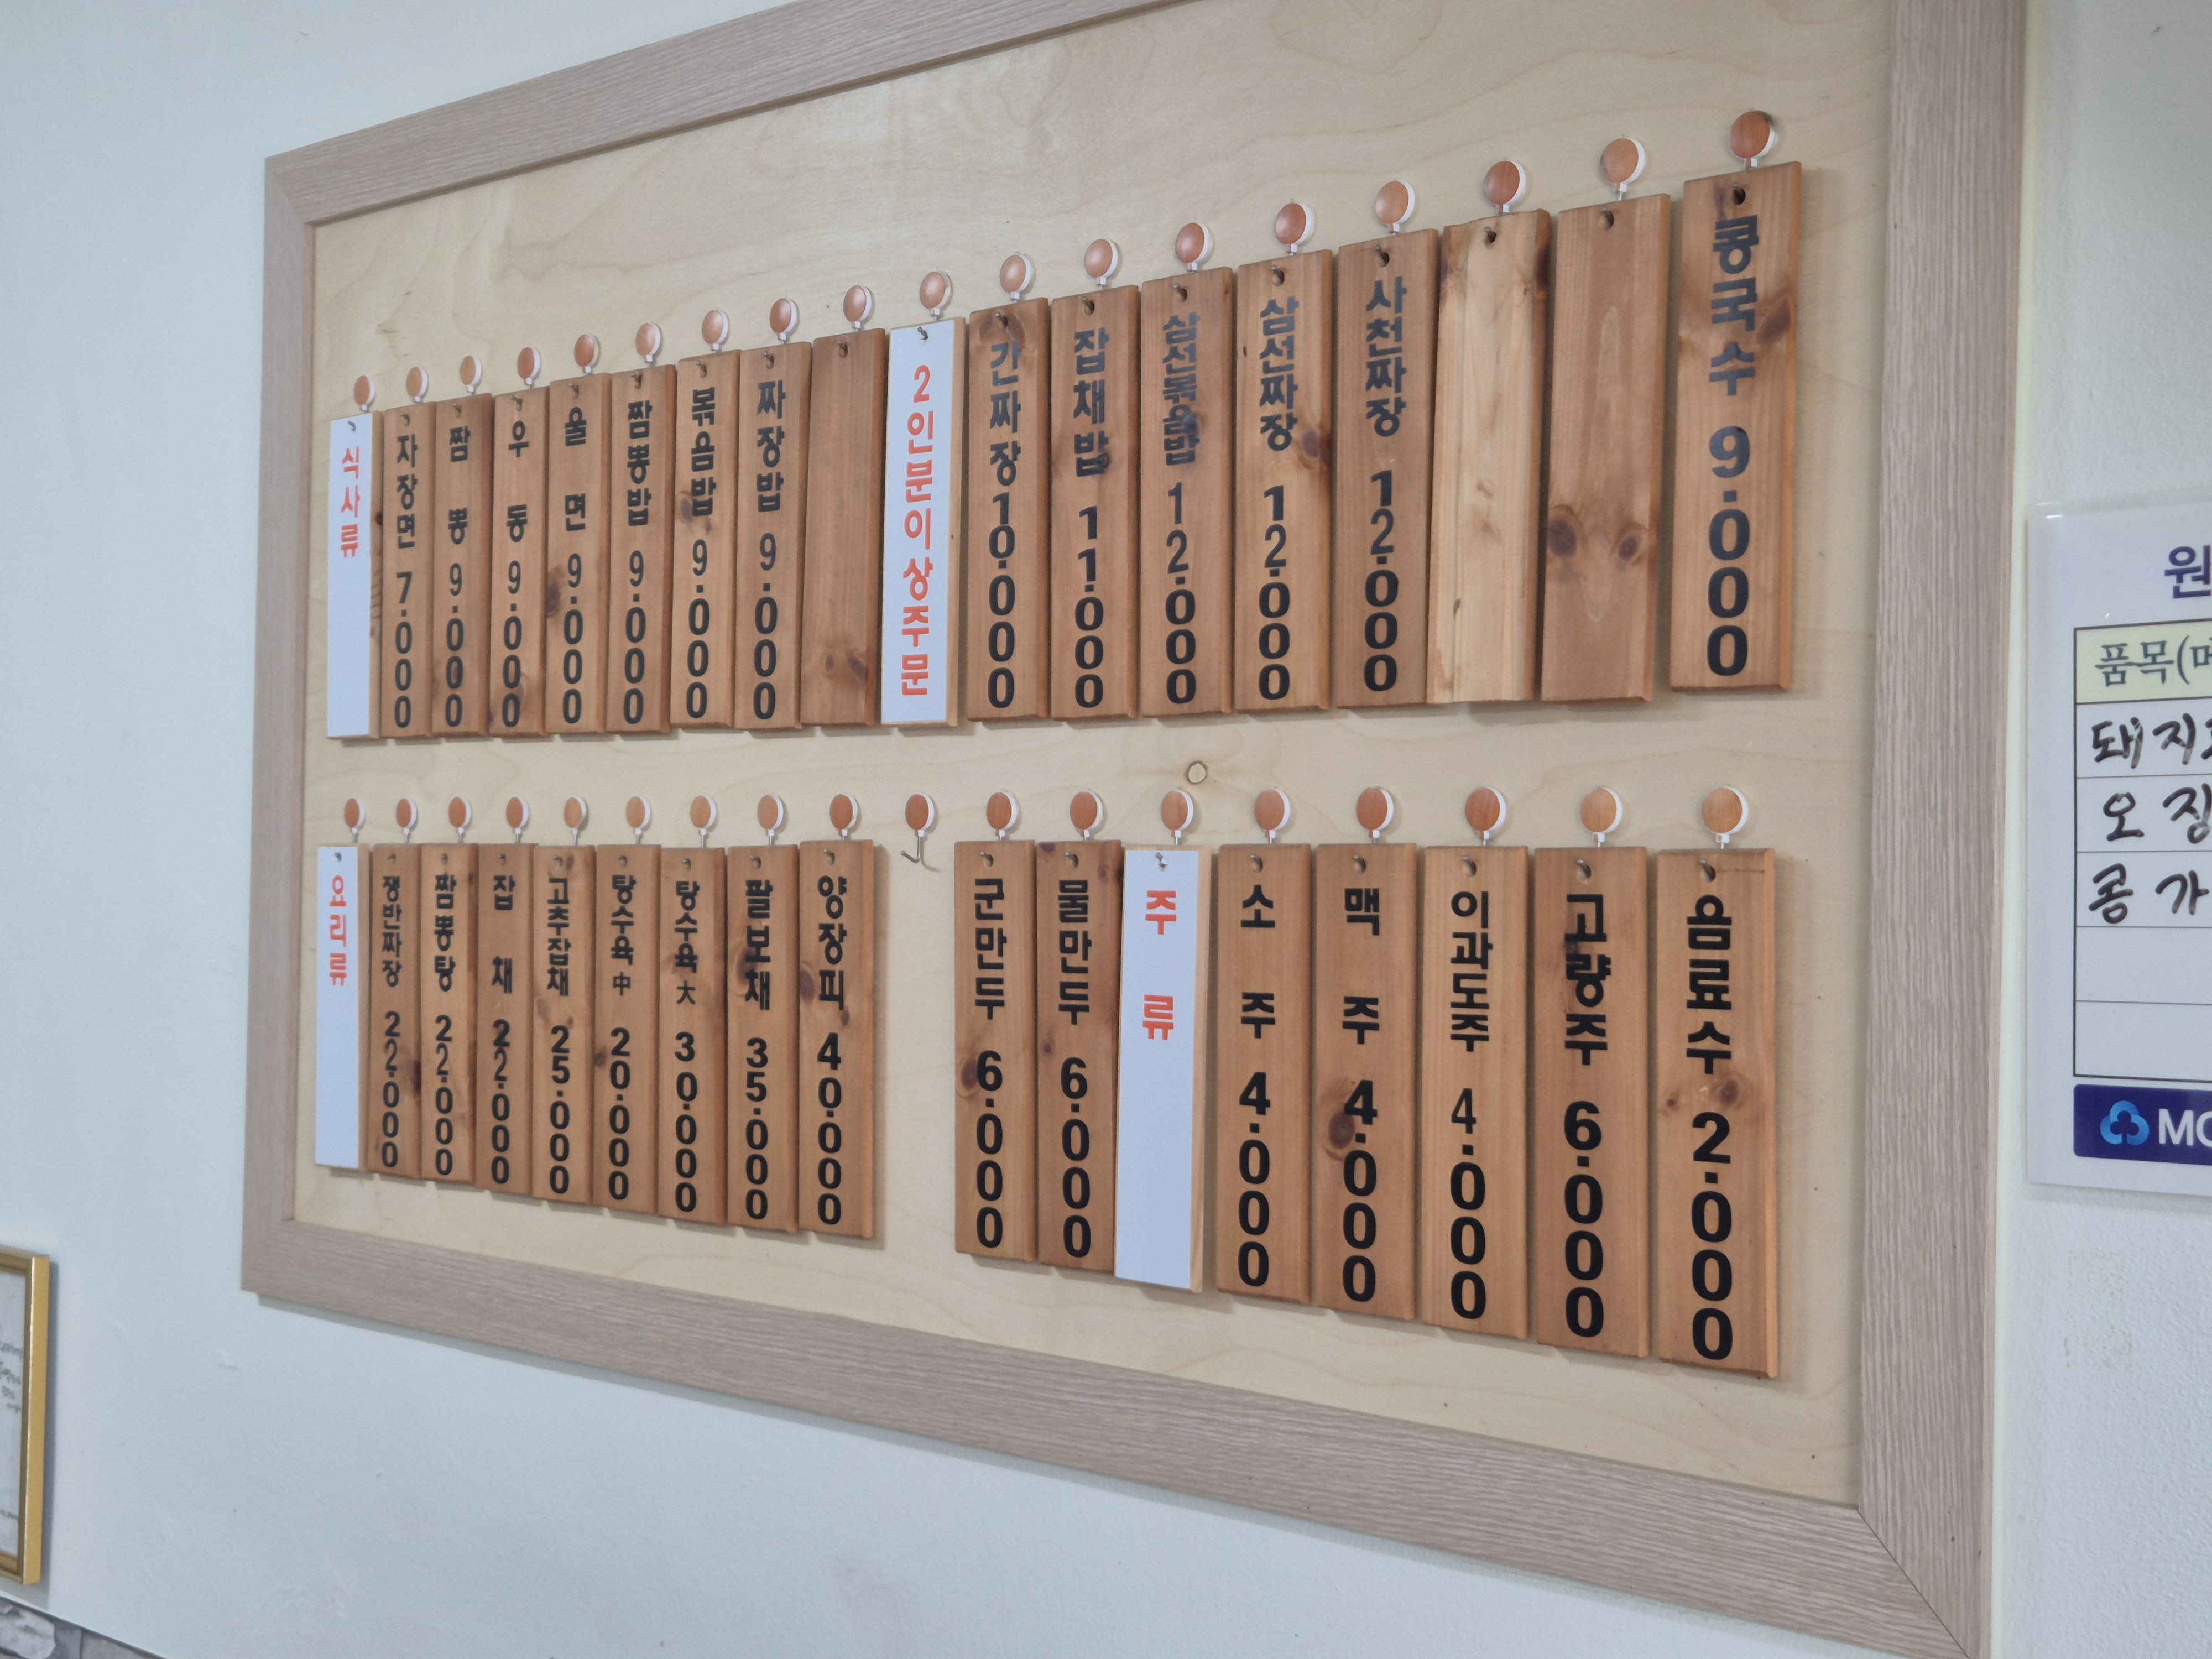 식사류
자장면 7.000
짬뽕 9.000
우동 9.000
울면 9.000
짬뽕밥 9.000
볶음밥 9.000
짜장밥 9.000
2인분이상주문
간짜장 10.000
잡채밥 11.000
삼선볶음밥 12.000
삼선짜장 12.000
사천짜장 12.000
콩국수 9.000
요리류
쟁반짜장 22.000
짬뽕탕 22.000
잡채 22.000
고추잡채 25.000
탕수육 中 20.000
탕수육 大 30.000
팔보채 35.000
양장피 40.000
군만두 6.000
물만두 6.000
주류
소주 4.000
맥주 4.000
이과도주 4.000
고량주 6.000
음료수 2.000
원
품목(메
돼지
오징
콩가
MG